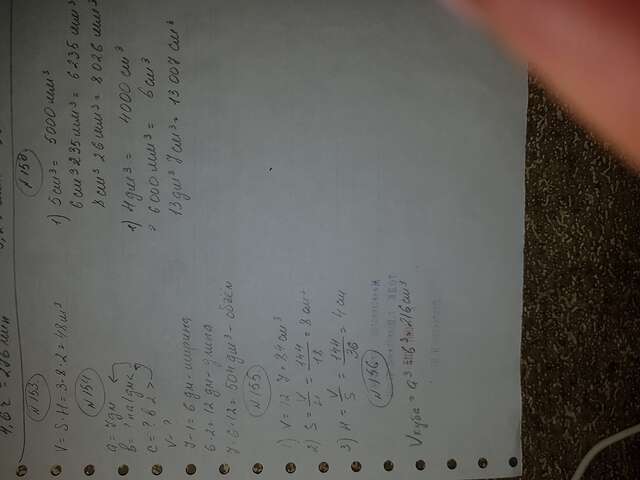 4,6 г = 276 мин
№153
V = S · H = 3 · 8 · 2 = 48 м³
№154
a = 7 дм
b = ? на 1 дм <
c = ? в 2 >
V - ?
7 - 1 = 6 дм - ширина
6 · 2 = 12 дм - длина
7 · 6 · 12 = 504 дм³ - объём
№155
1) V = 12 · 7 = 84 см³
2) S = V/H = 144/18 = 8 см²
3) H = V/S = 144/36 = 4 см
№156
Vкуба = a³ = 6³ = 216 см³
1) 5 см³ = 5000 мм³
6 см³ 235 мм³ = 6235 мм³
8 см³ 26 мм³ = 8026 мм³
4 дм³ = 4000 см³
6000 мм³ = 6 см³
13 дм³ 7 см³ = 13 007 см³